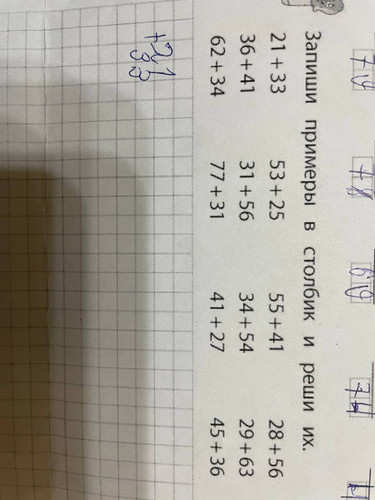 Запиши примеры в столбик и реши их.
21 + 33 53 + 25 55 + 41 28 + 56
36 + 41 31 + 56 34 + 54 29 + 63
62 + 34 77 + 31 41 + 27 45 + 36
+ 21
33